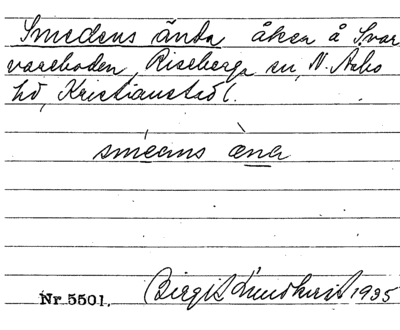 Smedens ända åker å Svar
vareboden, Riseberga sn, N. Åsbo
hd, Kristianstad l.
sméans æna
Nr. 5501. Birgit Lundkvist 1935